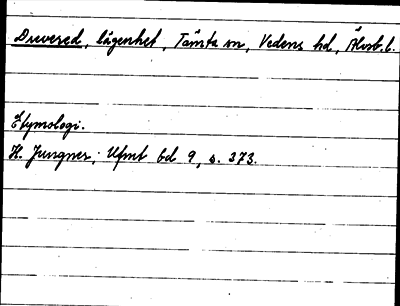 Druvered, lägenhet, Tämta sn, Vedens hd, Älvsb. l.
Etymologi.
H. Jungner, Ufmt bd 9, s. 373.